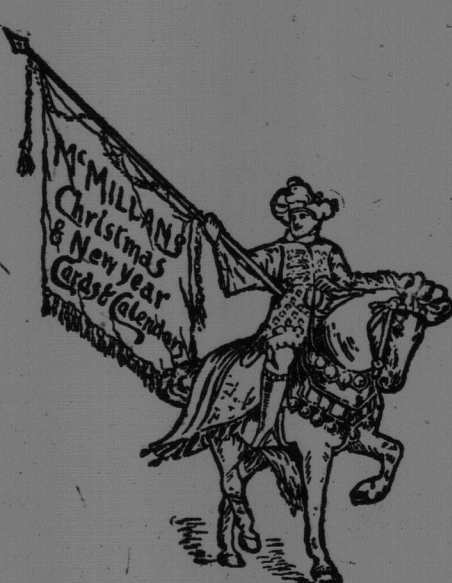 McMILLANS
Christmas
& New Year
Cards & Calendars